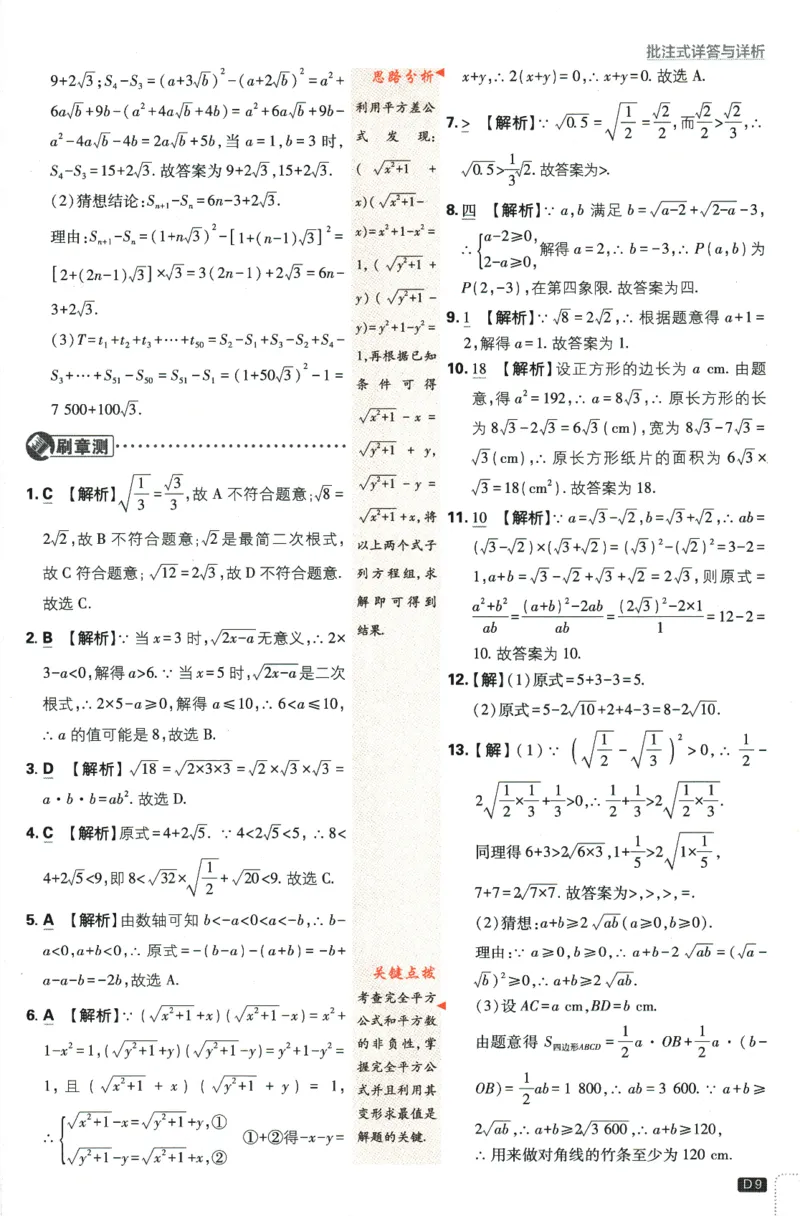 批注式详答与详析
9+2√3;S₄-S₃=(a+3√b)²-(a+2√b)²=a²+
6a√b+9b-(a²+4a√b+4b)=a²+6a√b+9b-
a²-4a√b-4b=2a√b+5b,当 a=1,b=3 时,
S₄-S₃=15+2√3. 故答案为 9+2√3,15+2√3.
(2)猜想结论:Sₙ₊₁-Sₙ=6n-3+2√3.
理由:Sₙ₊₁-Sₙ=(1+n√3)²-[1+(n-1)√3]²=
[2+(2n-1)√3]×√3=3(2n-1)+2√3=6n-
3+2√3.
(3)T=t₁+t₂+t₃+⋯+t₅₀=S₂-S₁+S₃-S₂+S₄-
S₃+⋯+S₅₁-S₅₀=S₅₁-S₁=(1+50√3)²-1=
7 500+100√3.
刷章测
1. C 【解析】√(1/3)=√3/3,故 A 不符合题意;√8=
2√2,故 B 不符合题意;√2是最简二次根式,
故 C 符合题意;√12=2√3,故 D 不符合题意.
故选 C.
2. B 【解析】∵ 当 x=3 时,√(2x-a)无意义,∴ 2×
3-a<0,解得 a>6. ∵ 当 x=5 时,√(2x-a)是二次
根式,∴ 2×5-a≥0,解得 a≤10,∴ 6<a≤10,
∴ a 的值可能是 8,故选 B.
3. D 【解析】√18=√(2×3×3)=√2×√3×√3=
a·b·b=ab². 故选 D.
4. C 【解析】原式=4+2√5. ∵ 4<2√5<5, ∴ 8<
4+2√5<9,即 8<√32×√(1/2)+√20<9. 故选 C.
5. A 【解析】由数轴可知 b<-a<0<a<-b,∴ b-
a<0,a+b<0,∴ 原式=-(b-a)-(a+b)=-b+
a-a-b=-2b,故选 A.
6. A 【解析】∵ (√(x²+1)+x)(√(x²+1)-x)=x²+
1-x²=1,(√(y²+1)+y)(√(y²+1)-y)=y²+1-y²=
1,且 (√(x²+1)+x)(√(y²+1)+y)=1,
∴ {√(x²+1)-x=√(y²+1)+y,①
√(y²+1)-y=√(x²+1)+x,②
①+②得-x-y=
思路分析
利用平方差公
式发现:
(√(x²+1)+
x)(√(x²+1)-
x)=x²+1-x²=
1,(√(y²+1)+
y)(√(y²+1)-
y)=y²+1-y²=
1,再根据已知
条件可得
√(x²+1)-x=
√(y²+1)+y,
√(y²+1)-y=
√(x²+1)+x,将
以上两个式子
列方程组,求
解即可得到
结果.
关键点拨
考查完全平方
公式和平方数
的非负性,掌
握完全平方公
式并且利用其
变形求最值是
解题的关键.
x+y,∴ 2(x+y)=0,∴ x+y=0. 故选 A.
7. > 【解析】∵ √0.5=√(1/2)=√2/2,而√2/2>√2/3,∴
√0.5>1/3√2. 故答案为>.
8. 四 【解析】∵ a,b 满足 b=√(a-2)+√(2-a)-3,
∴ {a-2≥0,
2-a≥0,
解得 a=2,∴ b=-3,∴ P(a,b)为
P(2,-3),在第四象限. 故答案为四.
9. 1 【解析】∵ √8=2√2,∴ 根据题意得 a+1=
2,解得 a=1. 故答案为 1.
10. 18 【解析】设正方形的边长为 a cm. 由题
意,得 a²=192,∴ a=8√3,∴ 原长方形的长
为 8√3-2√3=6√3(cm),宽为 8√3-7√3=
√3(cm),∴ 原长方形纸片的面积为 6√3×
√3=18(cm²). 故答案为 18.
11. 10 【解析】∵ a=√3-√2,b=√3+√2,∴ ab=
(√3-√2)×(√3+√2)=(√3)²-(√2)²=3-2=
1,a+b=√3-√2+√3+√2=2√3,则原式=
(a²+b²)/ab=((a+b)²-2ab)/ab=((2√3)²-2×1)/1=12-2=
10. 故答案为 10.
12.【解】(1)原式=5+3-3=5.
(2)原式=5-2√10+2+4-3=8-2√10.
13.【解】(1)∵ (√(1/2)-√(1/3))²>0,∴ 1/2-
2√(1/2×1/3)+1/3>0,∴ 1/2+1/3>2√(1/2×1/3).
同理得 6+3>2√(6×3),1+1/5>2√(1×1/5),
7+7=2√(7×7). 故答案为>,>,>,=.
(2)猜想:a+b≥2√(ab)(a≥0,b≥0).
理由:∵ a≥0,b≥0,∴ a+b-2√(ab)=(√a-
√b)²≥0,∴ a+b≥2√(ab).
(3)设 AC=a cm,BD=b cm.
由题意得 S四边形ABCD=1/2a·OB+1/2a·(b-
OB)=1/2ab=1 800,∴ ab=3 600. ∵ a+b≥
2√(ab),∴ a+b≥2√(3 600),∴ a+b≥120,
∴ 用来做对角线的竹条至少为 120 cm.
D9